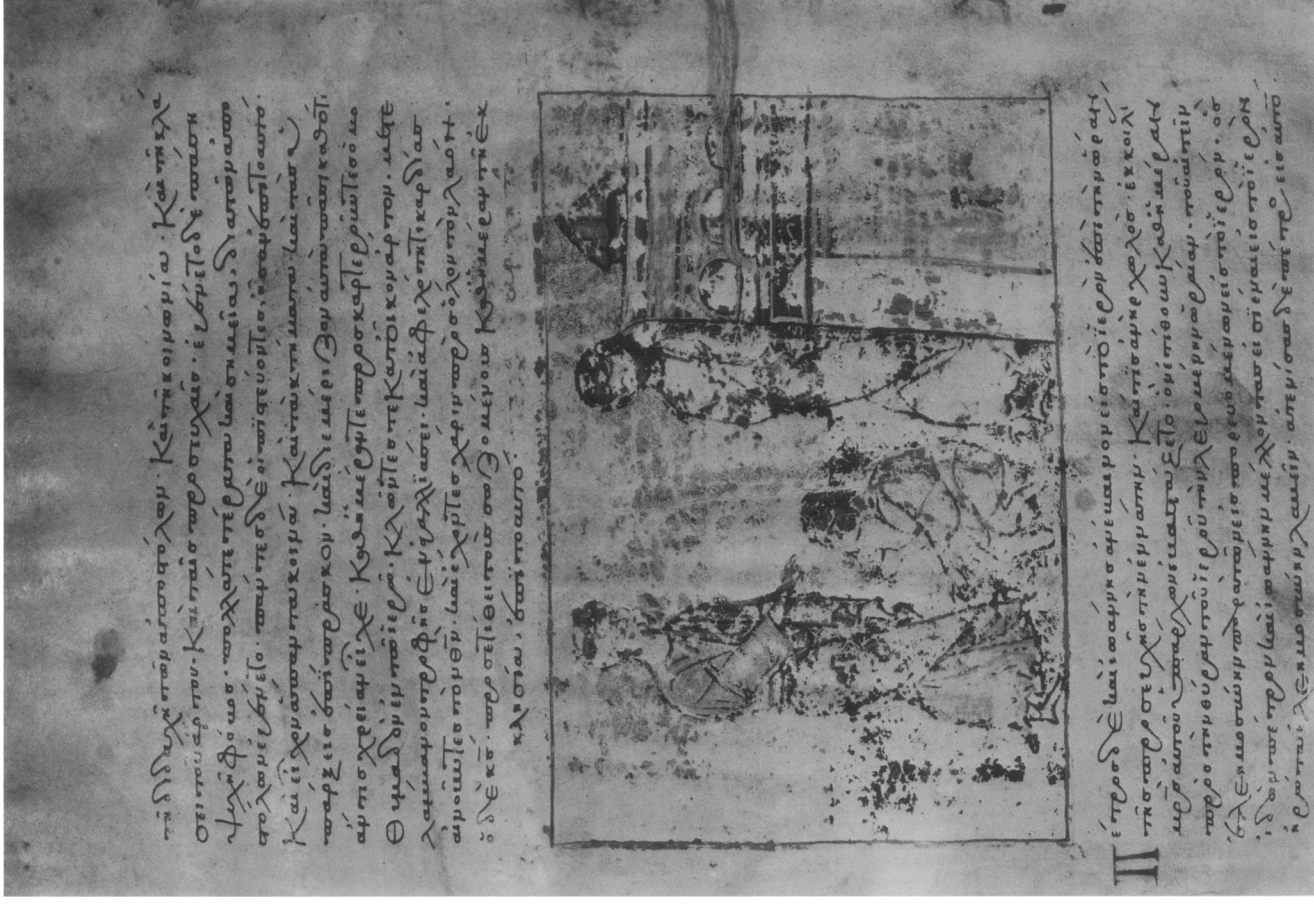 τῇ διδαχῇ τῶν ἀποστόλων. καὶ τῇ κοινωνίᾳ. καὶ τῇ κλά
σει τοῦ ἄρτου. καὶ ταῖς προσευχαῖς. ἐγένετο δὲ πάσῃ
ψυχῇ φόβος. πολλά τε τέρατα καὶ σημεῖα. διὰ τῶν ἀπο
στόλων ἐγένετο. πάντες δὲ οἱ πιστεύοντες ἦσαν ἐπὶ τὸ αὐτό.
καὶ εἶχον ἅπαντα κοινά. καὶ τὰ κτήματα καὶ τὰς ὑ
πάρξεις ἐπίπρασκον. καὶ διεμέριζον αὐτὰ πᾶσι καθότι
ἄν τις χρείαν εἶχε. καθ' ἡμέραν τε προσκαρτεροῦντες ὁμο
θυμαδὸν ἐν τῷ ἱερῷ. κλῶντές τε κατ' οἶκον ἄρτον. μετε
λάμβανον τροφῆς ἐν ἀγαλλιάσει. καὶ ἀφελότητι καρδίας
αἰνοῦντες τὸν θν. καὶ ἔχοντες χάριν πρὸς ὅλον τὸν λαόν.
ὁ δὲ κς προσετίθει τοὺς σωζομένους καθ' ἡμέραν τῇ ἐκ
κλησίᾳ. ἐπὶ τὸ αὐτό
Πέτρος δὲ καὶ ἰωάννης ἀνέβαινον εἰς τὸ ἱερὸν ἐπὶ τὴν ὥραν
τῆς προσευχῆς τὴν ἐννάτην. καί τις ἀνὴρ χωλὸς ἐκ κοιλί
μρς αὐτοῦ ὑπάρχων ἐβαστάζετο. ὃν ἐτίθουν καθ' ἡμέραν
πρὸς τὴν θύραν τοῦ ἱεροῦ τὴν λεγομένην ὡραίαν. τοῦ αἰτεῖν
ἐλεημοσύνην παρὰ τῶν εἰσπορευομένων εἰς τὸ ἱερόν. ὃς
ἰδὼν πέτρον καὶ ἰωάννην μέλλοντας εἰσιέναι εἰς τὸ ἱερὸν
ἠρώτα ἐλεημοσύνην λαβεῖν. ἀτενίσας δὲ πέτρος εἰς αὐτὸ